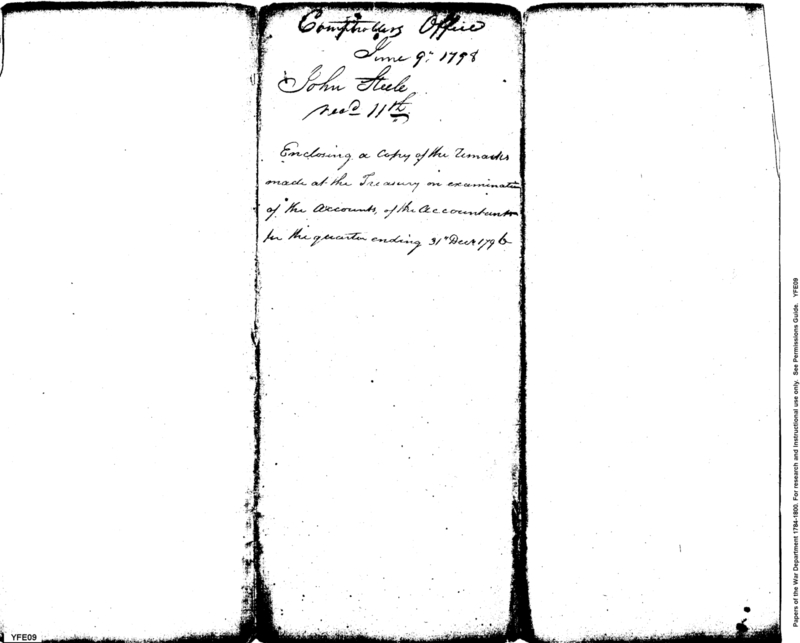 Comptrollers Office
June 9th 1798
John Steele
recd 11th
Enclosing a Copy of the Remarks
made at the Treasury on examination
of the Accounts, of the Accountant
for the quarter ending 31st Decr 1796
YFE09
Papers of the War Department 1784-1800. For research and instructional use only. See Permissions Guide. YFE09